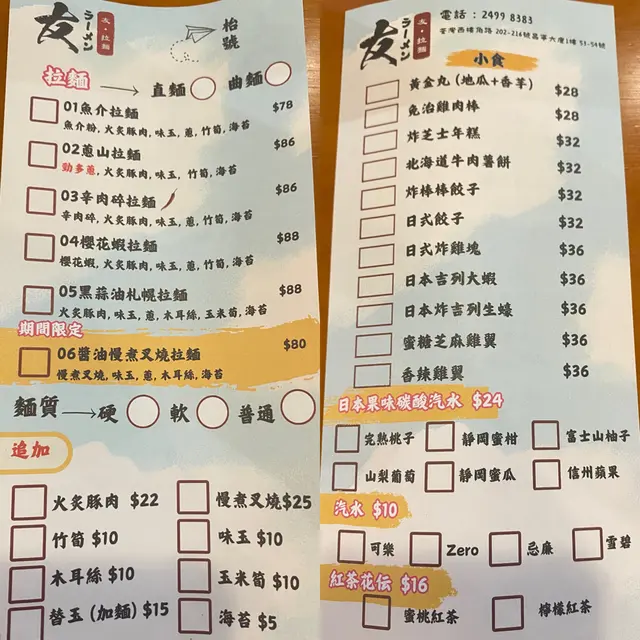 友
ラーメン
友・拉麵
枱號
拉麵 → 直麵 曲麵
01魚介拉麵 $78
魚介粉, 火炙豚肉, 味玉, 蔥, 竹筍, 海苔
02蔥山拉麵 $86
勁多蔥, 火炙豚肉, 味玉, 蔥, 竹筍, 海苔
03辛肉碎拉麵 $86
辛肉碎, 火炙豚肉, 味玉, 蔥, 竹筍, 海苔
04櫻花蝦拉麵 $88
櫻花蝦, 火炙豚肉, 味玉, 蔥, 竹筍, 海苔
05黑蒜油札幌拉麵 $88
火炙豚肉, 味玉, 蔥, 木耳絲, 玉米筍, 海苔
期間限定
06醬油慢煮叉燒拉麵 $80
慢煮叉燒, 味玉, 蔥, 木耳絲, 海苔
麵質 → 硬 軟 普通
追加
火炙豚肉 $22 慢煮叉燒$25
竹筍 $10 味玉 $10
木耳絲 $10 玉米筍 $10
替玉 (加麵) $15 海苔 $5
友
ラーメン
友・拉麵
電話：2499 8383
荃灣西樓角路 202-216號昌華大廈1樓 53-54號
小食
黃金丸 (地瓜+香芋) $28
免治雞肉棒 $28
炸芝士年糕 $32
北海道牛肉薯餅 $32
炸棒棒餃子 $32
日式餃子 $32
日式炸雞塊 $36
日本吉列大蝦 $36
日本炸吉列生蠔 $36
蜜糖芝麻雞翼 $36
香辣雞翼 $36
日本果味碳酸汽水 $24
完熟桃子 靜岡蜜柑 富士山柚子
山梨葡萄 靜岡蜜瓜 信州蘋果
汽水 $10
可樂 Zero 忌廉 雪碧
紅茶花伝 $16
蜜桃紅茶 檸檬紅茶